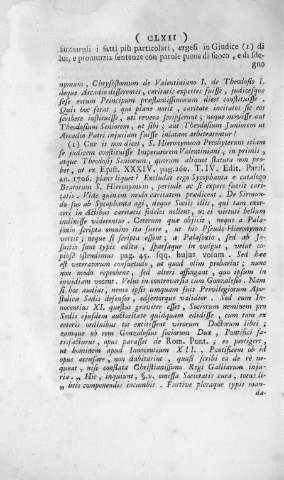 ( CLXII )
fuzzargli i fatti più particolari, ergesi in Giudice (1) di
lui, e pronunzia sentenze con parole piene di fuoco, e di sde-
gno
nymum, Chrysostomum de Valentiniano I. de Theodosio I.
deque Arcadio disserentes, caritatis expertes fuisse, judicesque
sese eorum Principum præstantissimorum dicet constituisse.
Quis hoc ferat? qui plane norit, caritate incitatos sic eos
scribere instituisse, uti revera scripserunt; neque movisse aut
Theodosium Seniorem, ut sibi; aut Theodosium Juniorem ut
Arcadio Patri injuriam fuisse inlatam arbitrarentur?
(1) Cur is non dicet, S. Hieronymum Presbyterum etiam
se judicem constituisse Imperatorum Valentiniani, in primis,
atque Theodosii Senioris, quorum aliquot statuta non pro-
bet, ut ex Epist. XXXIV. pag. 260. T. IV. Edit. Paris.
an. 1706. plane liquet? Excludat ergo Sycophanta e catalogo
Beatorum S. Hieronymum, perinde ac si expers fuerit cari-
tatis. Vide quænam modo caritatem prædicent. De Sirmon-
do suo ab Sycophanta agi, neque Sociis illis, qui tam exer-
cere in Actibus caritatis fideles nolient, ut et virtuti bellum
indixisse videantur. Ceterum quæ objicit, quasi a Pala-
foxio scripta omnino ita fuere, ut hic Pseudo-Hieronymus
vertit; neque si scripta essent, a Palafoxio, sed ab Je-
suitis sunt typis edita, sparsaque in vulgus, velut co-
piose ostendimus pag. 45. sqq. hujus volum. Sed hæc
est veteratorum consuetudo, ut quod olim probarint; nunc
non modo reprehendent, Sed alteri affingant, quo ipsum in
invidiam vocent. Velut in controversia cum Gonzalesio. Nam
si hos audias, nemo ipsis umquam suit Privilegiorum Apo-
stolicæ Sedis defensor, adsertorque validior. Sed cum In-
nocentius XI. questus graviter esset, Sociorum neminem pro
Sedis ejusdem auctoritate quidquam edidisse, cum tam ex
exteris ordinibus tot extitissent virorum Doctorum libri;
eamque ob rem Gonzalesius sociorum Dux, Pontifici sa-
tisfacturus, opus parasset de Rom. Pont.; eo pertigere,
ut hominem apud Innocentium XII. Pontificem ob id
opus accusare, non dubitarint, quasi scribi ea de re ne-
queat, nisi constata Christianissimo Regi Galliarum inju-
ria. „ Hic, inquiunt, §. v. omissa Societatis cura, totus li-
„ bris componendis incumbit. Furtive pleraque typis man-
da-